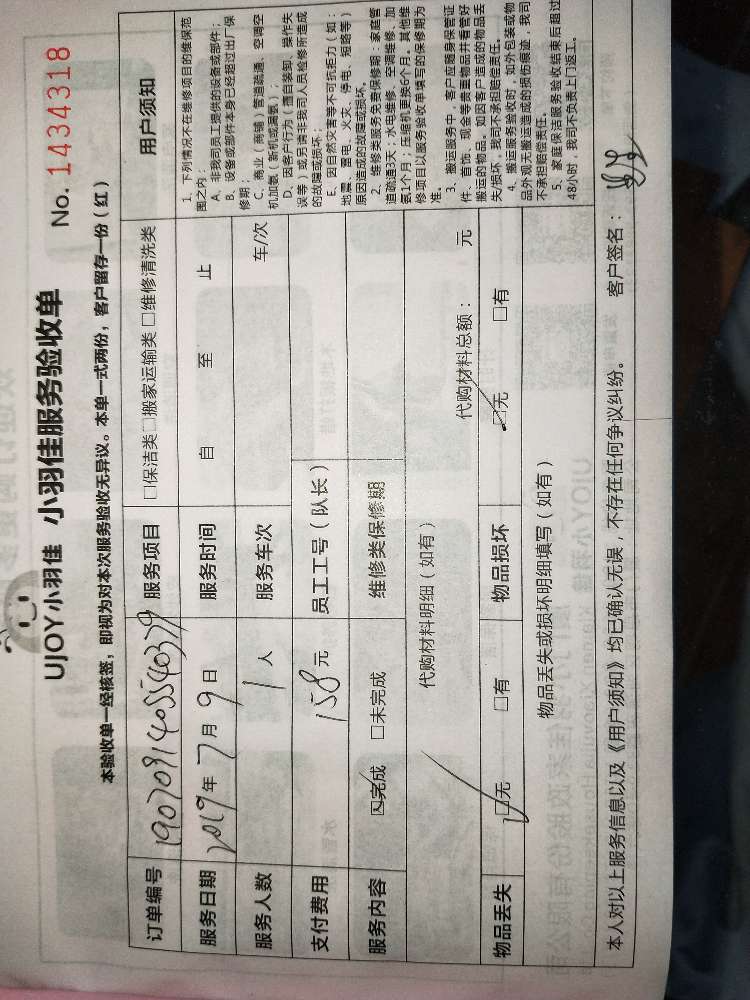 UJOY小羽佳 小羽佳服务验收单 No. 1434318
本验收单一经核签，即视为对本次服务验收无异议。本单一式两份，客户留存一份（红）
订单编号 服务项目 □保洁类□搬家运输类□维修清洗类
服务日期 2019年7月9日 服务时间 自 至 止
服务人数 1人 服务车次 车/次
支付费用 158元 员工工号（队长）
服务内容 ☑完成 □未完成 维修类保修期
代购材料明细（如有） 代购材料总额： 元
物品丢失 ☑无 □有 物品损坏 ☑无 □有
物品丢失或损坏明细填写（如有）
用户须知
1、下列情况不在维修项目的维保范
围之内：
A、非我司员工提供的设备或部件；
B、设备或部件本身已经超过出厂保
修期；
C、商业（商铺）管道疏通、空调空
机加氨（新机或漏氨）；
D、因客户行为（擅自装卸、操作失
误等）或另请非我司人员检修所造成
的故障或损坏；
E、因自然灾害等不可抗拒力（如：
地震、雷电、火灾、停电、短路等）
原因造成的故障或损坏。
2、维修类服务免费保修期：家庭管
道疏通3天；水电维修、空调维修、加
氨1个月；压缩机更换6个月。其他维
修项目以服务验收单填写的保修期为
准。
3、搬运服务中，客户应随身保管证
件、首饰、现金等贵重物品并看管好
搬运的物品。如因客户造成的物品丢
失/损坏，我司不承担赔偿责任。
4、搬运服务验收时，如外包装或物
品外观无搬运造成的损伤痕迹，我司
不承担赔偿责任。
5、家庭保洁服务验收结束后超过
48小时，我司不负责上门返工。
本人对以上服务信息以及《用户须知》均已确认无误，不存在任何争议纠纷。 客户签名：